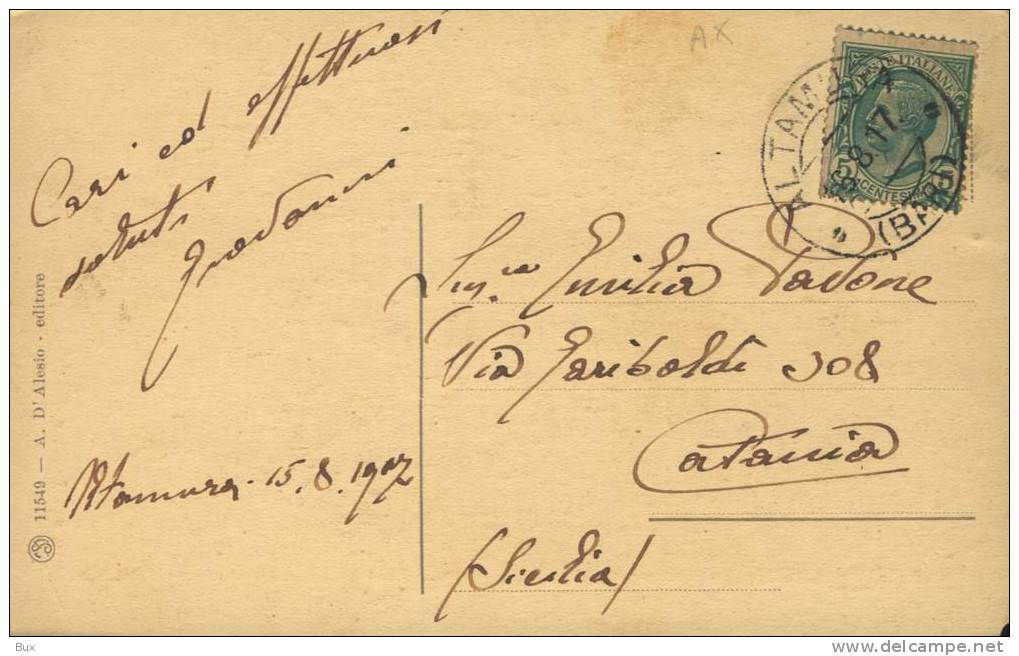 Cari ed affettuosi
saluti
Altamura 15.8.1917
Emilia Pavone
Via Garibaldi 308
Catania
(Sicilia)
11549 — A. D'Alesio - editore
AX
ALTAMURA
8.17
(BARI)
POSTE ITALIANE
5 CENTESIMI 5
Bux
www.delcampe.net